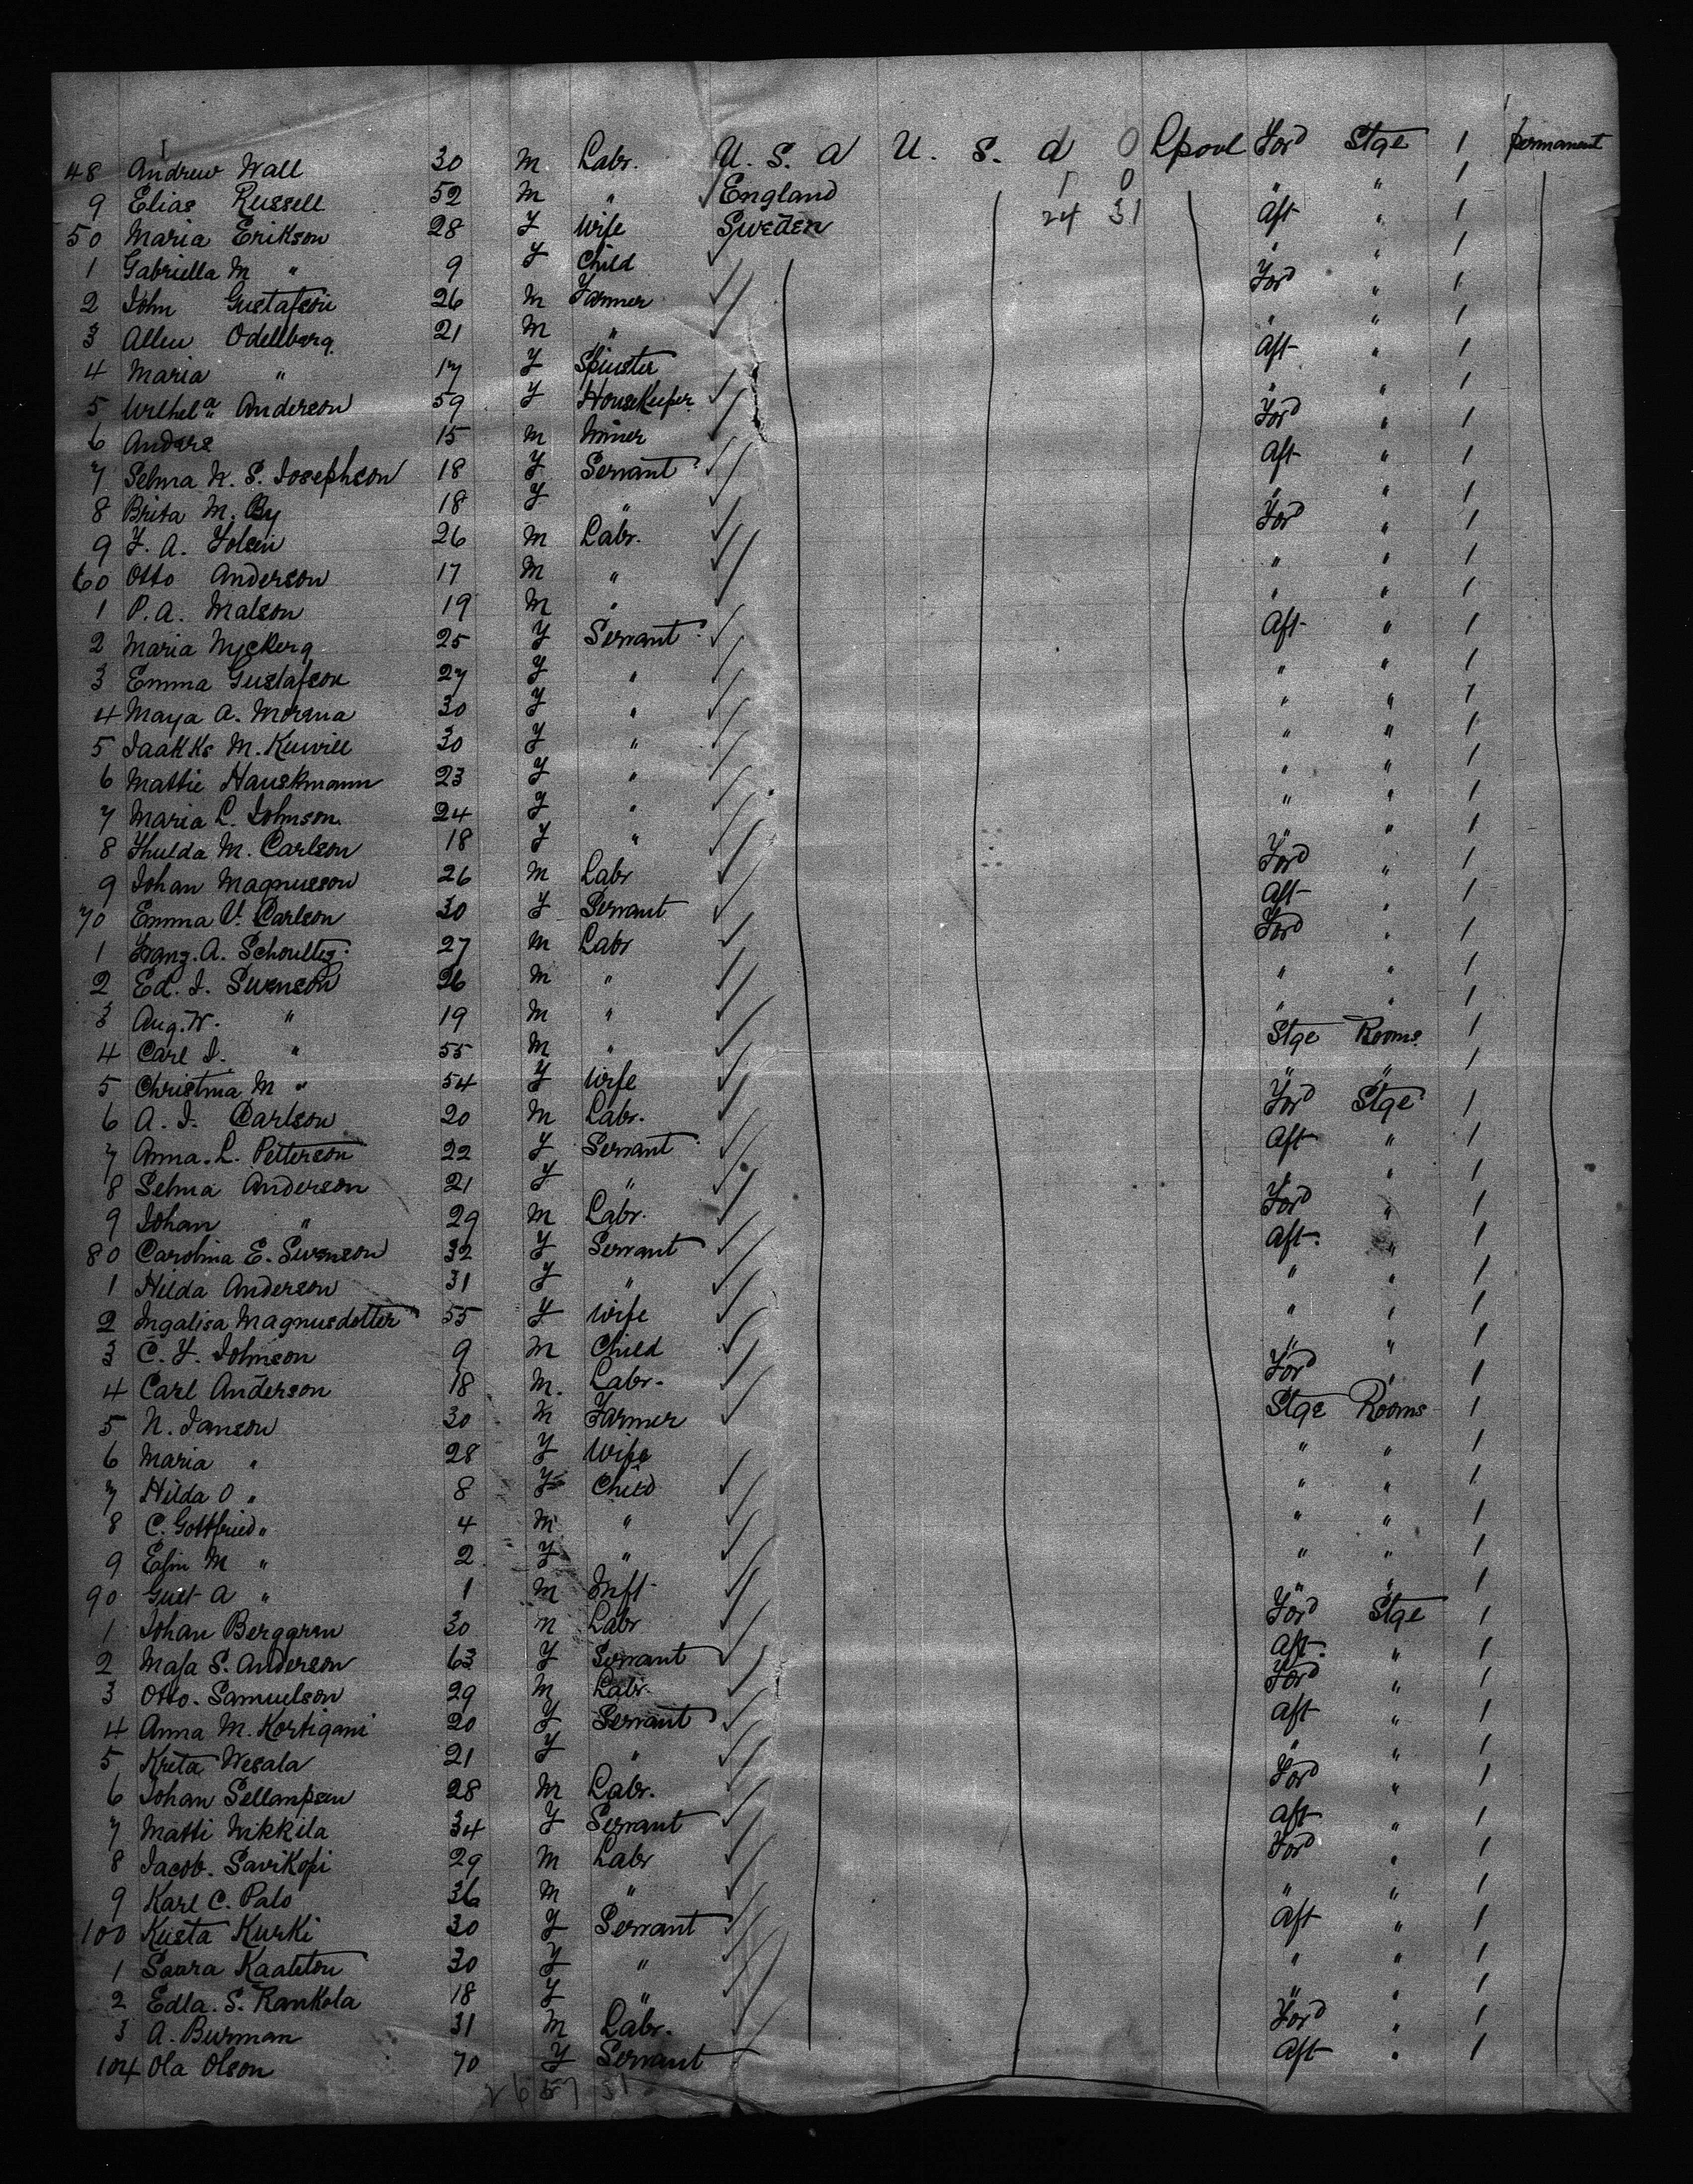 48 Andrew Wall 30 M. Labr. U. S. A U. S. a 0 Lpool Ford Stge 1 permanent
9 Elias Russell 52 M " England 1 0 " " 1
50 Maria Erikson 28 F Wife Sweden 24 31 Aft " 1
1 Gabriella M " 9 F Child " " 1
2 John Gustafson 26 M Farmer Ford " 1
3 Allen Odellberg 21 M " " " 1
4 Maria " 17 F Spinster Aft " 1
5 Wilhela Anderson 59 F HouseKeeper " " 1
6 Anders 15 M Miner Ford " 1
7 Selma W. S. Josephson 18 F Servant Aft " 1
8 Brita M. By 18 F " " " 1
9 F. A. Folsin 26 M Labr. Ford " 1
60 Otto Anderson 17 M " " " 1
1 P. A. Malson 19 M " " " 1
2 Maria Nyckerg 25 F Servant Aft " 1
3 Emma Gustafson 27 F " " " 1
4 Maya A. 30 F " " " 1
5 Jaakks M. 30 F " " " 1
6 Mattie Hauskmann 23 F " " " 1
7 Maria L. Johnson. 24 F " " " 1
8 Hulda M. Carlson 18 F " " " 1
9 Johan Magnusson 26 M Labr Ford " 1
70 Emma V. Carlson 30 F Servant Aft " 1
1 Franz. A. Schoultz. 27 M Labr Ford " 1
2 Ed. J. Swenson 26 M " " " 1
3 Aug. W. " 19 M " " " 1
4 Carl J. " 55 M " Stge Rooms 1
5 Christina M " 54 F Wife " " 1
6 A. J. Carlson 20 M Labr. Ford Stge 1
7 Anna. L. Petterson 22 F Servant Aft " 1
8 Selma Anderson 21 F " " " 1
9 Johan " 29 M Labr. Ford " 1
80 Carolina E. Swenson 32 F Servant Aft. " 1
1 Hilda Anderson 31 F " " " 1
2 Ingalisa Magnusdotter 55 F Wife " " 1
3 C. F. Johnson 9 M Child " " 1
4 Carl Anderson 18 M. Labr. Ford " 1
5 N. Janson 30 M Farmer Stge Rooms 1
6 Maria " 28 F Wife " " 1
7 Hilda O " 8 F Child " " 1
8 C. Gottfried " 4 M " " " 1
9 M " 2 F " " " 1
90 Gust A " 1 M Inft " " 1
1 Johan Berggren 30 M Labr Ford Stge 1
2 Maja S. Anderson 63 F Servant Aft. " 1
3 Otto. Samuelson 29 M Labr. Ford " 1
4 Anna M. Kortigani 20 F Servant Aft " 1
5 Kreta Wesala 21 F " " " 1
6 Johan Sellampen 28 M Labr. Ford " 1
7 Matti Nikkila 34 F Servant Aft " 1
8 Jacob. Savikopi 29 M Labr Ford " 1
9 Karl C. Palo 36 M " " " 1
100 Kusta Kurki 30 F Servant Aft " 1
1 Saara Kaaleton 30 F " " " 1
2 Edla. S. Rankola 18 F " " " 1
3 A. Burman 31 M Labr. Ford " 1
104 Ola Olson 70 F Servant Aft " 1
26 57 51